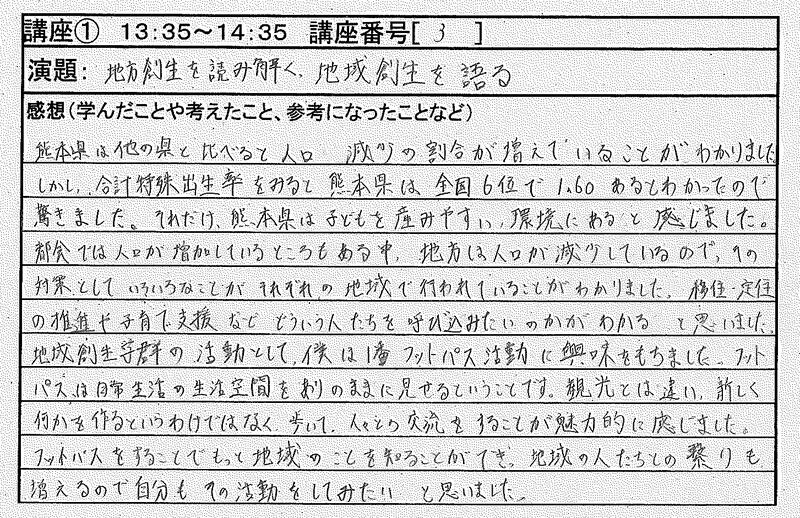 講座① 13:35～14:35 講座番号[ 3 ]
演題：地方創生を読み解く、地域創生を語る
感想（学んだことや考えたこと、参考になったことなど）
熊本県は他の県と比べると人口 減少の割合が増えていることがわかりました
しかし、合計特殊出生率をみると熊本県は全国6位で1.60あるとわかったので
驚きました。それだけ、熊本県は子どもを産みやすい環境にあると感じました。
都会では人口が増加しているところもある中、地方は人口が減少しているので、その
対策としていろいろなことがそれぞれの地域で行われていることがわかりました。移住・定住
の推進や子育て支援などどういう人たちを呼び込みたいのかがわかる と思いました。
地域創生学群の活動として、僕は1番フットパス活動に興味をもちました。フット
パスは日常生活の生活空間をありのままに見せるということです。観光とは違い、新しく
何かを作るというわけではなく、歩いて、人々との交流をすることが魅力的に感じました。
フットパスをすることでもっと地域のことを知ることができ、地域の人たちとの繋りも
増えるので自分もその活動をしてみたい と思いました。